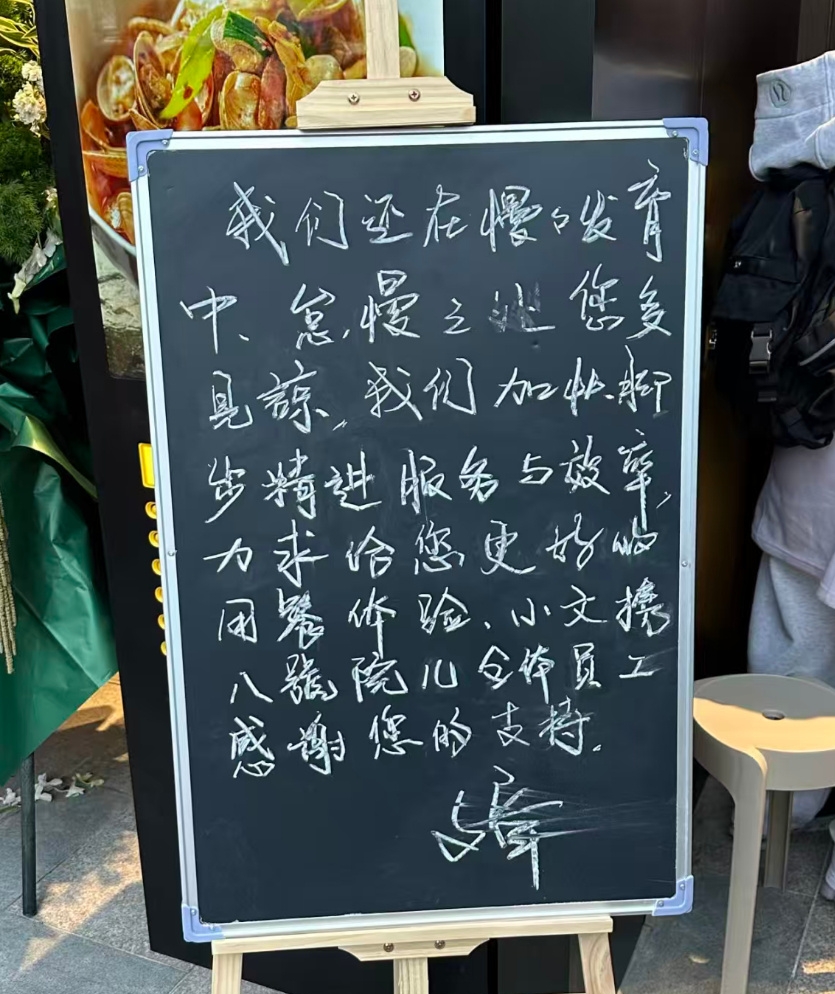 我们还在慢々发育
中、怠慢之处您多
见諒,我们加快脚
步精进服务与效率,
力求给您更好的
用餐体验、小文携
八號院儿全体员工
感謝您的支持.